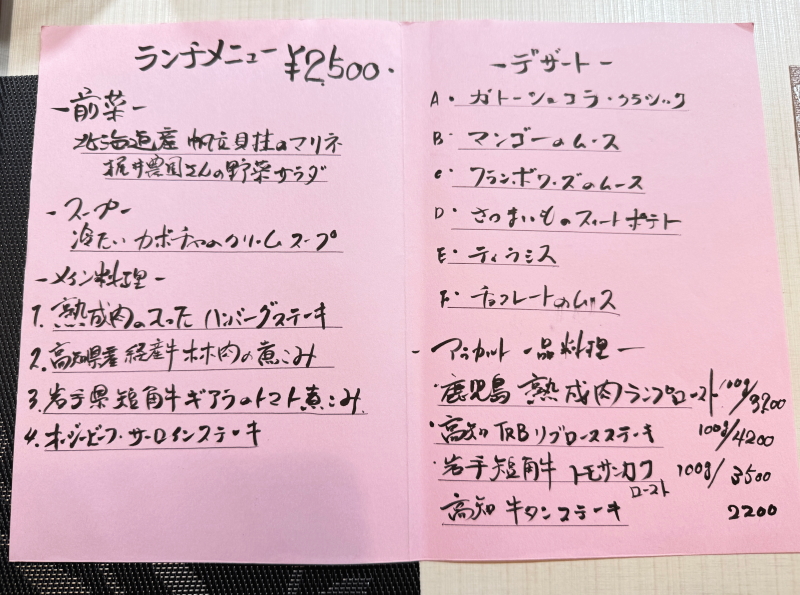 ランチメニュー ¥2,500.
-前菜-
北海道産 帆立貝柱のマリネ
梶井農園さんの野菜サラダ
-スープ-
冷たい カボチャのクリームスープ
-メイン料理-
1. 熟成肉の入った ハンバーグステーキ
2. 高知県産 経産牛ホホ肉の煮こみ
3. 岩手県短角牛ギアラのトマト煮こみ
4. オージービーフ・サーロインステーキ
-デザート-
A・ガトーショコラ・クラシック
B・マンゴーのムース
C・フランボワーズのムース
D・さつまいものスイートポテト
E・ティラミス
F・チョコレートのムース
-アラカルト 一品料理-
・鹿児島 熟成肉ランプロースト 100g/3900
・高知 TRBリブロースステーキ 100g/4200
・岩手短角牛 トモサンカク ロースト 100g/3500
高知 牛タンステーキ 2200